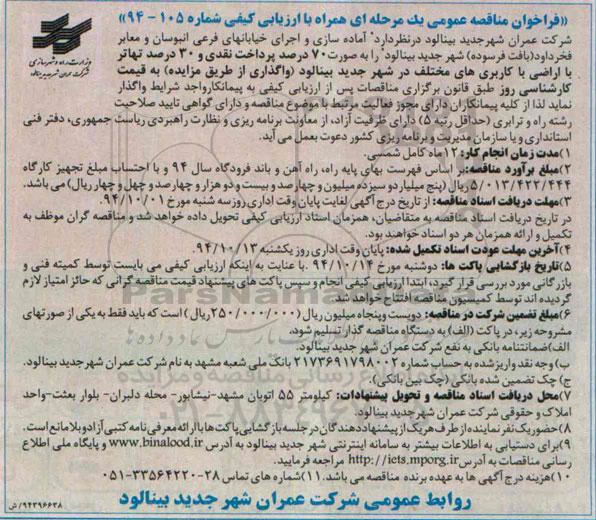 «فراخوان مناقصه عمومی یک مرحله ای همراه با ارزیابی کیفی شماره ۱۰۵ - ۹۴»
وزارت راه و شهرسازی
شرکت عمران شهر جدید بینالود
شرکت عمران شهرجدید بینالود درنظردارد" آماده سازی و اجرای خیابانهای فرعی انبوسان و معابر
فخرداود(بافت فرسوده) شهر جدید بینالود" را به صورت ۷۰ درصد پرداخت نقدی و ۳۰ درصد تهاتر
با اراضی با کاربری های مختلف در شهر جدید بینالود (واگذاری از طریق مزایده) به قیمت
کارشناسی روز طبق قانون برگزاری مناقصات پس از ارزیابی کیفی به پیمانکار واجد شرایط واگذار
نماید لذا از کلیه پیمانکاران دارای مجوز فعالیت مرتبط با موضوع مناقصه و دارای گواهی تایید صلاحیت
رشته راه و ترابری (حداقل رتبه ۵) دارای ظرفیت آزاد، از معاونت برنامه ریزی و نظارت راهبردی ریاست جمهوری، دفتر فنی
استانداری و یا سازمان مدیریت و برنامه ریزی کشور دعوت بعمل می آید.
۱)مدت زمان انجام کار: ۱۲ ماه کامل شمسی.
۲)مبلغ برآورد مناقصه: بر اساس فهرست بهای پایه راه، راه آهن و باند فرودگاه سال ۹۴ و با احتساب مبلغ تجهیز کارگاه
۵/۰۱۳/۴۲۲/۴۴۴ ریال (پنج میلیارد و سیزده میلیون و چهارصد و بیست و دو هزار و چهارصد و چهل و چهار ریال) می باشد.
۳)مهلت دریافت اسناد مناقصه: از تاریخ درج آگهی لغایت پایان وقت اداری روز سه شنبه مورخ ۹۴/۱۰/۰۱
در تاریخ دریافت اسناد مناقصه به متقاضیان، همزمان اسناد ارزیابی کیفی تحویل داده خواهد شد و مناقصه گران موظف به
تکمیل و ارائه همزمان هر دو اسناد خواهند بود.
۴)آخرین مهلت عودت اسناد تکمیل شده: پایان وقت اداری روز یکشنبه ۹۴/۱۰/۱۳.
۵)تاریخ بازگشایی پاکت ها: دوشنبه مورخ ۹۴/۱۰/۱۴. با عنایت به اینکه ارزیابی کیفی می بایست توسط کمیته فنی و
بازرگانی مورد بررسی قرار گیرد، ابتدا ارزیابی کیفی انجام و سپس پاکت های پیشنهاد قیمت مناقصه گرانی که حائز امتیاز لازم
گردیده اند توسط کمیسیون مناقصه افتتاح خواهد شد.
۶)مبلغ تضمین شرکت در مناقصه: دویست و پنجاه میلیون ریال (۲۵۰/۰۰۰/۰۰۰ ریال) است که باید فقط به یکی از صورتهای
مشروحه زیر، در پاکت (الف) به دستگاه مناقصه گذار تسلیم شود.
الف)ضمانتنامه بانکی به نفع شرکت عمران شهر جدید بینالود.
ب)وجه نقد واریز شده به حساب شماره ۲۱۷۳۶۹۱۷۹۸۰۰۲ بانک ملی شعبه مشهد به نام شرکت عمران شهر جدید بینالود.
ج) چک تضمین شده بانکی (چک بین بانکی).
۷)محل دریافت اسناد مناقصه و تحویل پیشنهادات: کیلومتر ۵۵ اتوبان مشهد-نیشابور- محله دلبران- بلوار بعثت-واحد
املاک و حقوقی شرکت عمران شهر جدید بینالود.
۸)حضور یک نفر نماینده از طرف هر یک از پیشنهاد دهندگان در جلسه بازگشایی پاکت ها با ارائه معرفی نامه کتبی آزاد و بلامانع است.
۹)برای دستیابی به اطلاعات بیشتر به سامانه اینترنتی شهر جدید بینالود به آدرس www.binalood.ir و پایگاه ملی اطلاع
رسانی مناقصات به آدرس http://iets.mporg.ir مراجعه فرمایید.
۱۰)هزینه درج آگهی ها به عهده برنده مناقصه می باشد. ۱۱)شماره های تماس ۲۸-۳۳۵۶۴۲۲۰-۰۵۱
روابط عمومی شرکت عمران شهر جدید بینالود
۹۴۳۹۶۶۳۸/ش
ParsNamad
۰۲۱-۸۸۳۴۹۶